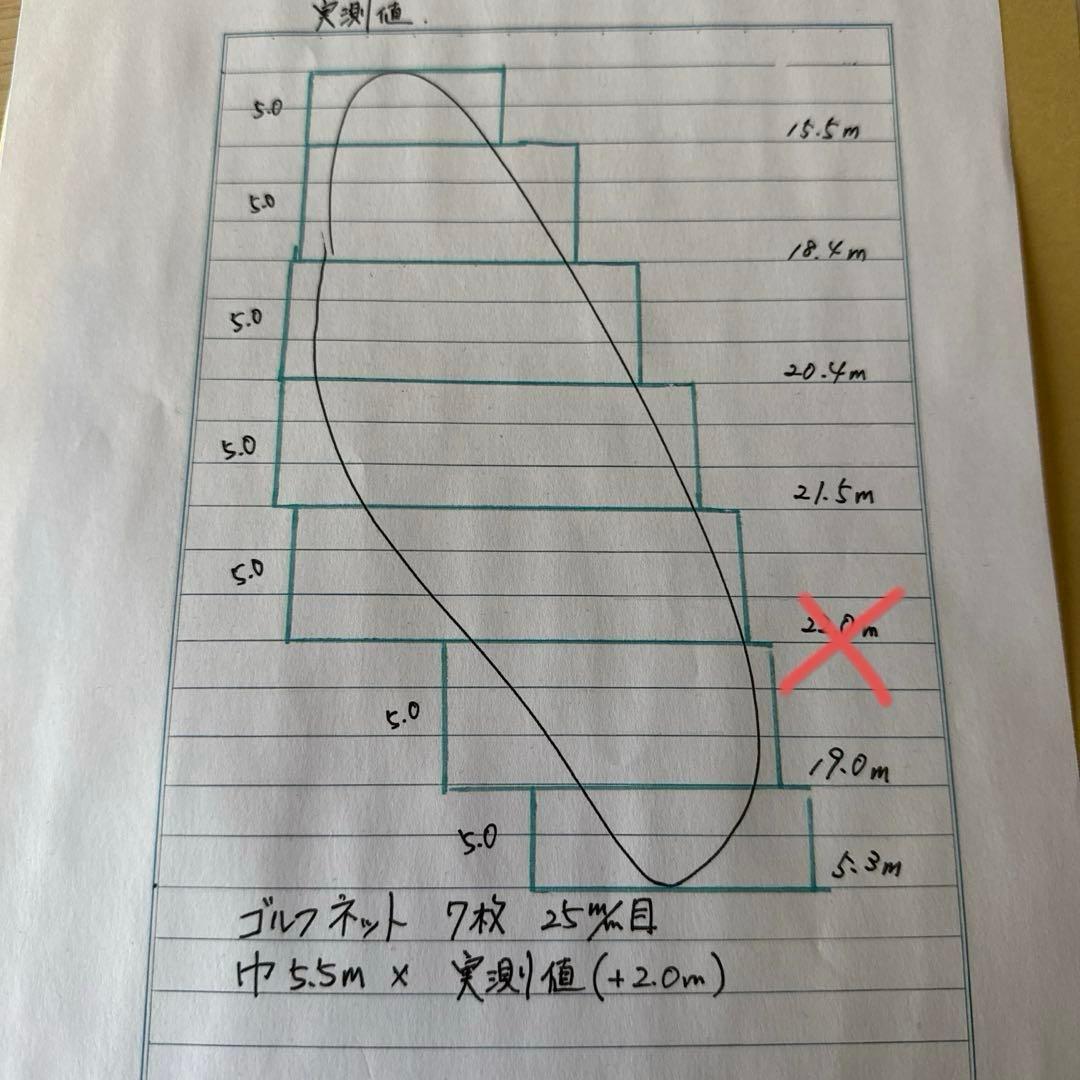 実測値.
5.0
15.5m
5.0
18.4m
5.0
20.4m
5.0
21.5m
5.0
5.0
19.0m
5.0
5.3m
ゴルフネット 7枚 25m/m目
巾5.5m × 実測値(+2.0m)